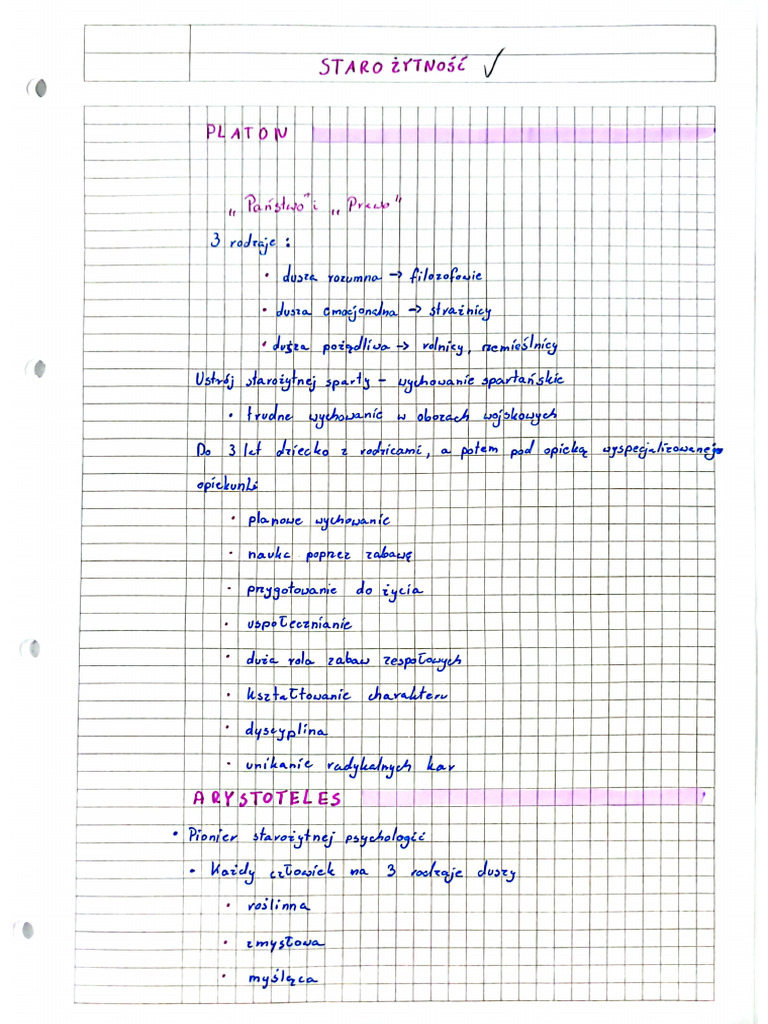 STAROŻYTNOŚĆ ✓
PLATON
„Państwo" i „Prawo"
3 rodzaje :
• dusza rozumna → filozofowie
• dusza emocjonalna → strażnicy
• dusza pożądliwa → rolnicy, rzemieślnicy
Ustrój starożytnej sparty – wychowanie spartańskie
• trudne wychowanie w obozach wojskowych
Do 3 lat dziecko z rodzicami, a potem pod opieką wyspecjalizowanej
opiekunki
• planowe wychowanie
• nauka poprzez zabawę
• przygotowanie do życia
• uspołecznianie
• duża rola zabaw zespołowych
• kształtowanie charakteru
• dyscyplina
• unikanie radykalnych kar
ARYSTOTELES
• Pionier starożytnej psychologii
• Każdy człowiek na 3 rodzaje duszy
• roślinna
• zmysłowa
• myśląca